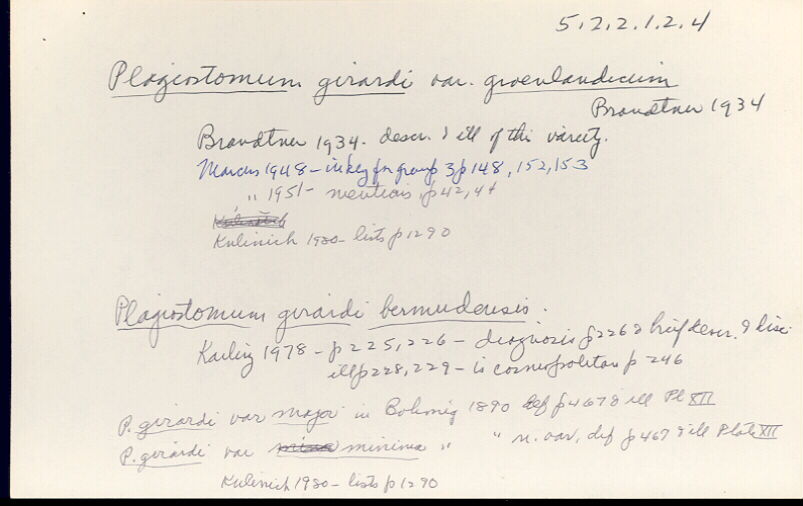 5.2.2.1.2.4
Plagiostomum girardi var. groenlandicum
Brandtner 1934
Brandtner 1934. descr. & ill of this variety.
Marcus 1948 - in key for group 3 p 148, 152, 153
" 1951 - mentions, p 42, 44
Kulinich 1980 - lists p 1290
Plagiostomum girardi bermudensis.
Karling 1978 - p 225, 226 - diagnosis p 226 & brief descr. & disc.
ill p 228, 229 - is cosmopolitan p 246
P. girardi var major in Bohmig 1890 def p 467 & ill Pl XII
P. girardi var minima " " n. var, def p 467 & ill Plate XII
Kulinich 1980 - lists p 1290